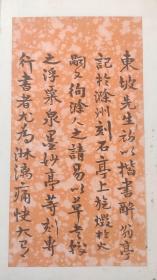 東坡先生初以楷書醉翁亭
記於滁州刻石亭上旋燬於火
嗣又徇滁人之請易以草書較
之浮槎泉墨妙亭等刻專
行書者尤為淋漓痛快大已丁